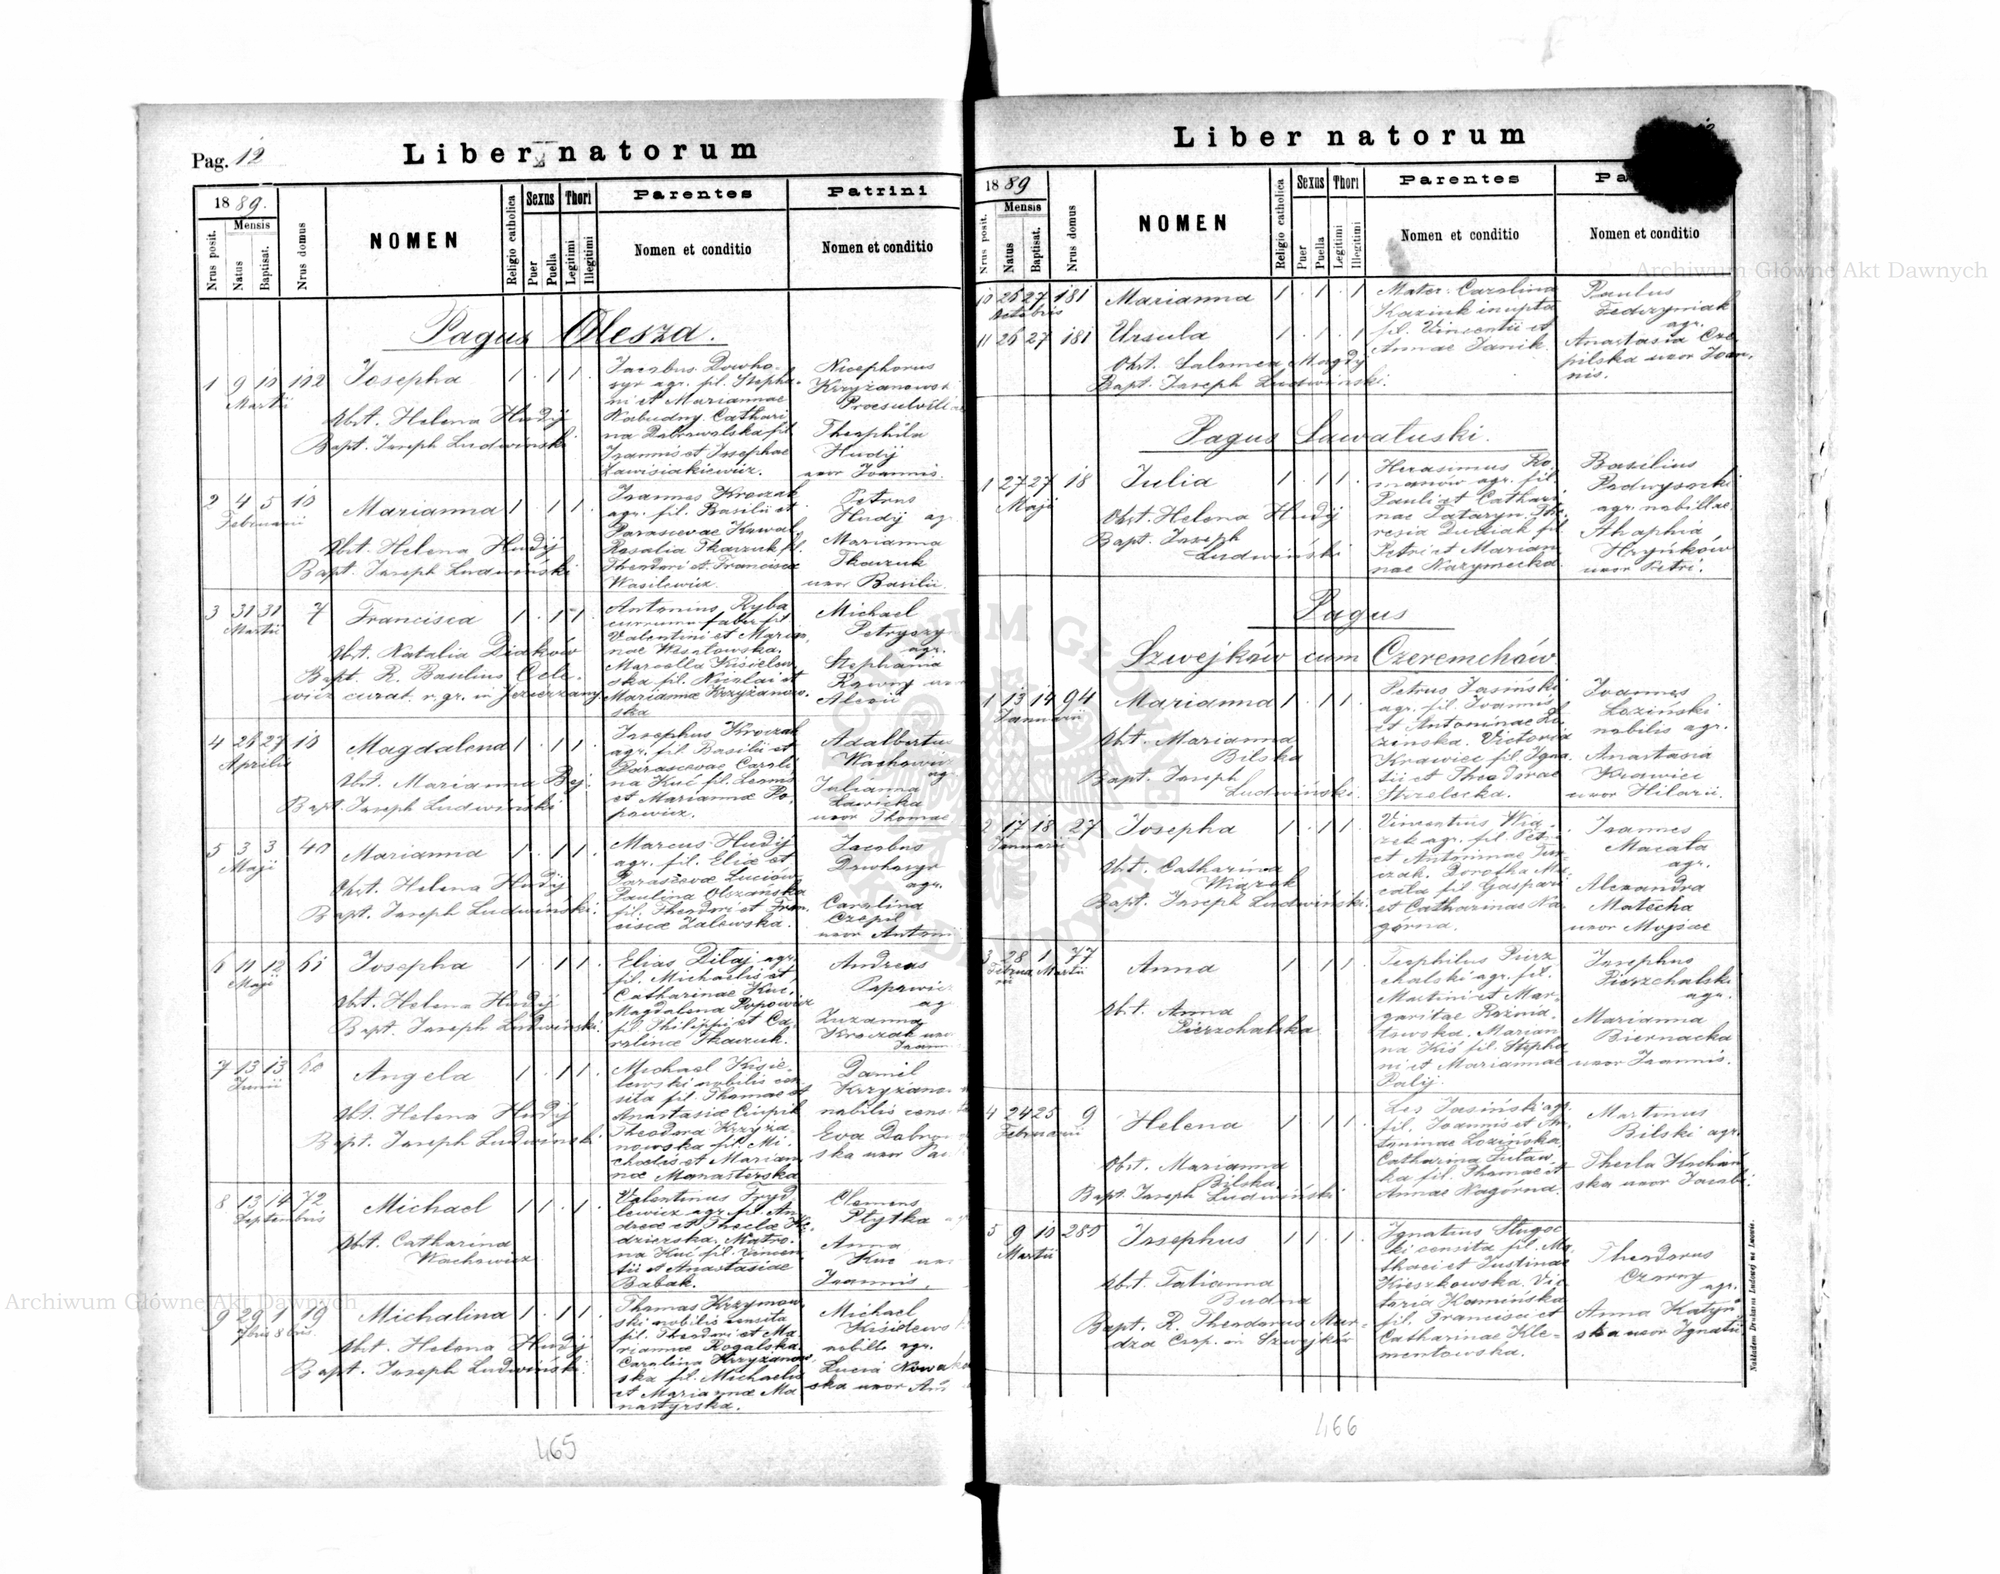 Pag. 12
Liber natorum
1889.
Mensis
Nrus posit.
Natus
Baptisat.
Nrus domus
NOMEN
Religio catholica
Sexus
Puer
Puella
Thori
Legitimi
Illegitimi
Parentes
Nomen et conditio
Patrini
Nomen et conditio
Pagus Olesza.
1 9 10 102 Josepha 1 . 1 1 .
Martii
Obst. Helena Hudÿ
Bapt. Joseph Ludwiński
Jacobus Dowho-
syr agr. fil. Stepha-
ni et Mariannae
Nabudny. Cathari
na Dobrowolska fil.
Joannis et Josephae
Nicephorus
Krzyżanowski
Theophila
Hudÿ
uxor Joannis.
2 4 5 10 Marianna 1 . 1 1 .
Februarii
Obst. Helena Hudÿ
Bapt. Joseph Ludwiński
Joannes Kroczak
agr. fil. Basilii et
Parascevae Kowal.
Rosalia Tkaczuk fil.
Theodori et Francisca
Wasilewicz.
Petrus
Hudÿ ag
Marianna
Tkaczuk
uxor Basilii.
3 31 31 7 Francisca 1 . 1 1 .
Martii
Obst. Natalia Diaków
Bapt. R. Basilius Cele-
wicz curat. r. gr. in Jezierzany
Antonius Ryba
currum faber fil.
Valentini et Marian
nae Wisłowska.
Marcella Kisielew
ska fil. Nicolai et
Mariannae Krzyżanow-
ska
Michael
Petryszy
agr.
Stephania
Alexii
4 26 27 10 Magdalena 1 . 1 1 .
Aprilis
Obst. Marianna Bej
Bapt. Joseph Ludwiński
Josephus Kroczak
agr. fil. Basilii et
Parascevae Caroli
na Kuć fil. Leonis
et Mariannae Po-
powicz.
Adalbertus
Wachowicz
agr
Julianna
Ławicka
uxor Thomae
5 3 3 40 Marianna 1 . 1 1 .
Maji
Obst. Helena Hudÿ
Bapt. Joseph Ludwiński.
Marcus Hudÿ
agr. fil. Eliae et
Parascevae Luciów
Paulina Olszańska
fil. Theodori et Fran
ciscae Zalewska.
Jacobus
Dowhosyr
agr.
Carolina
Czepil
uxor Antoni
6 11 12 61 Josepha 1 . 1 1 .
Maji
Obst. Helena Hudÿ
Bapt. Joseph Ludwiński.
Elias Ditaj agr.
fil. Michaelis et
Catharinae Kuć.
Magdalena Popowicz
fil. Philippi et Ca-
rolinae Tkaczuk.
Andreas
Popowicz
ag
Zuzanna
Kroczak uxo
Joann
7 13 13 60 Angela 1 . 1 1 .
Junii
Obst. Helena Hudÿ
Bapt. Joseph Ludwiński.
Michael Kisie-
lewski nobilis cen
sita fil. Thomae et
Anastasiae Ciupik
Theodora Krzyża
nowska fil. Mi-
chaelis et Marian
nae Monasterska
Daniel
Krzyżano-
nobilis cens
Eva Dobro
ska uxor Pau
8 13 14 72 Michael 1 1 . 1 .
Septembris
Obst. Catharina
Wachowicz
Valentinus Fryd
lewicz agr. fil. An
dreae et Theclae
dzierska. Matro-
na Kuć fil. Vincen
tii et Anastasiae
Babak.
Clemens
Płytka
Anna
Kuc uxo
Joannis.
9 29 1 19 Michalina 1 . 1 1 .
7bris 8bris
Obst. Helena Hudÿ
Bapt. Joseph Ludwiński.
Thomas Krzyżanow
ski nobilis censita
fil. Theodori et Ma-
riannae Rogalska.
Carolina Krzyżanow
ska fil. Michaelis
et Mariannae Mo
nastyrska.
Michael
Kisielews
nobilis agr.
Lucia Nowako
ska uxor An
465
Liber natorum
1889
Mensis
Nrus posit.
Natus
Baptisat.
Nrus domus
NOMEN
Religio catholica
Sexus
Puer
Puella
Thori
Legitimi
Illegitimi
Parentes
Nomen et conditio
Pa
Nomen et conditio
10 26 27 181 Marianna 1 . 1 . 1
Octobris
11 26 27 181 Ursula 1 . 1 . 1
Obst. Salomea Magdÿ
Bapt. Joseph Ludwiński.
Mater: Carolina
Kaziuk inupta
fil. Vincentii et
Annae Janik.
Paulus
Fedczyniak
agr.
Anastasia Cze
pilska uxor Joan,
nis.
Pagus Sawałuski.
1 27 27 18 Julia 1 . 1 1 .
Maji
Obst. Helena Hudÿ
Bapt. Joseph
Ludwiński
Herasimus Ro
manow agr. fil.
Pauli et Cathari
nae Tataryn. The
resia Duciak fil.
Petri et Marian
nae Nazymecka.
Basilius
Podwysocki
agr. nobilis
Ahaphia
Hryńków
uxor Petri.
Pagus
Szwejków cum Czeremchów
1 13 14 94 Marianna 1 . 1 1 .
Januarii
Obst. Marianna
Bilska
Bapt. Joseph
Ludwiński.
Petrus Jasiński
agr. fil. Joannis
et Antoninae Ło-
zinska. Victoria
Krawiec fil. Igna
tii et Theodorae
Strzelecka.
Joannes
Łoziński
nobilis agr.
Anastasia
Krawiec
uxor Hilarii.
2 17 18 27 Josepha 1 . 1 1 .
Januarii
Obst. Catharina
Wiązek
Bapt. Joseph Ludwiński.
Vincentius Wią-
zek agr. fil. Petri
et Antoninae Tur
czak. Dorothea Ma-
cała fil. Gaspari
et Catharinae Na-
górna.
Joannes
Macała
agr.
Alexandra
Matecha
uxor Mojsae
3 28 1 77 Anna 1 . 1 1 .
Februa Martii
rii
Obst. Anna
Pierzchalska
Teophilus Pierz
chalski agr. fil.
Martini et Mar-
garitae Rożnia-
towska. Marian
na Kiś fil. Stepha
ni et Mariannae
Palij.
Josephus
Pierzchalski
agr.
Marianna
Biernacka
uxor Joannis.
4 24 25 9 Helena 1 . 1 1 .
Februarii
Obst. Marianna
Bilska.
Bapt. Joseph Ludwiński
Leo Jasiński agr.
fil. Joannis et An
toninae Łozińska
Catharina Tutaw
ka fil. Thomae et
Annae Nagórna.
Martinus
Bilski agr.
Thecla Kochań
ska uxor Jacobi.
5 9 10 280 Josephus 1 1 . 1 .
Martii
Obst. Tatianna
Budna
Bapt. R. Theodorus Mar-
dza Coop. in Szwejków
Ignatius Sługoc
ki censita fil. Ma-
thaei et Justinae
Kieszkowska. Vic
toria Kamińska
fil. Francisci et
Catharinae Kle-
mentowska.
Theodorus
Czorny
agr.
Anna Katyń
ska uxor Ignatii
Nakładem Drukarni Ludowej we Lwowie.
466
Archiwum Główne Akt Dawnych
Archiwum Główne Akt Dawnych